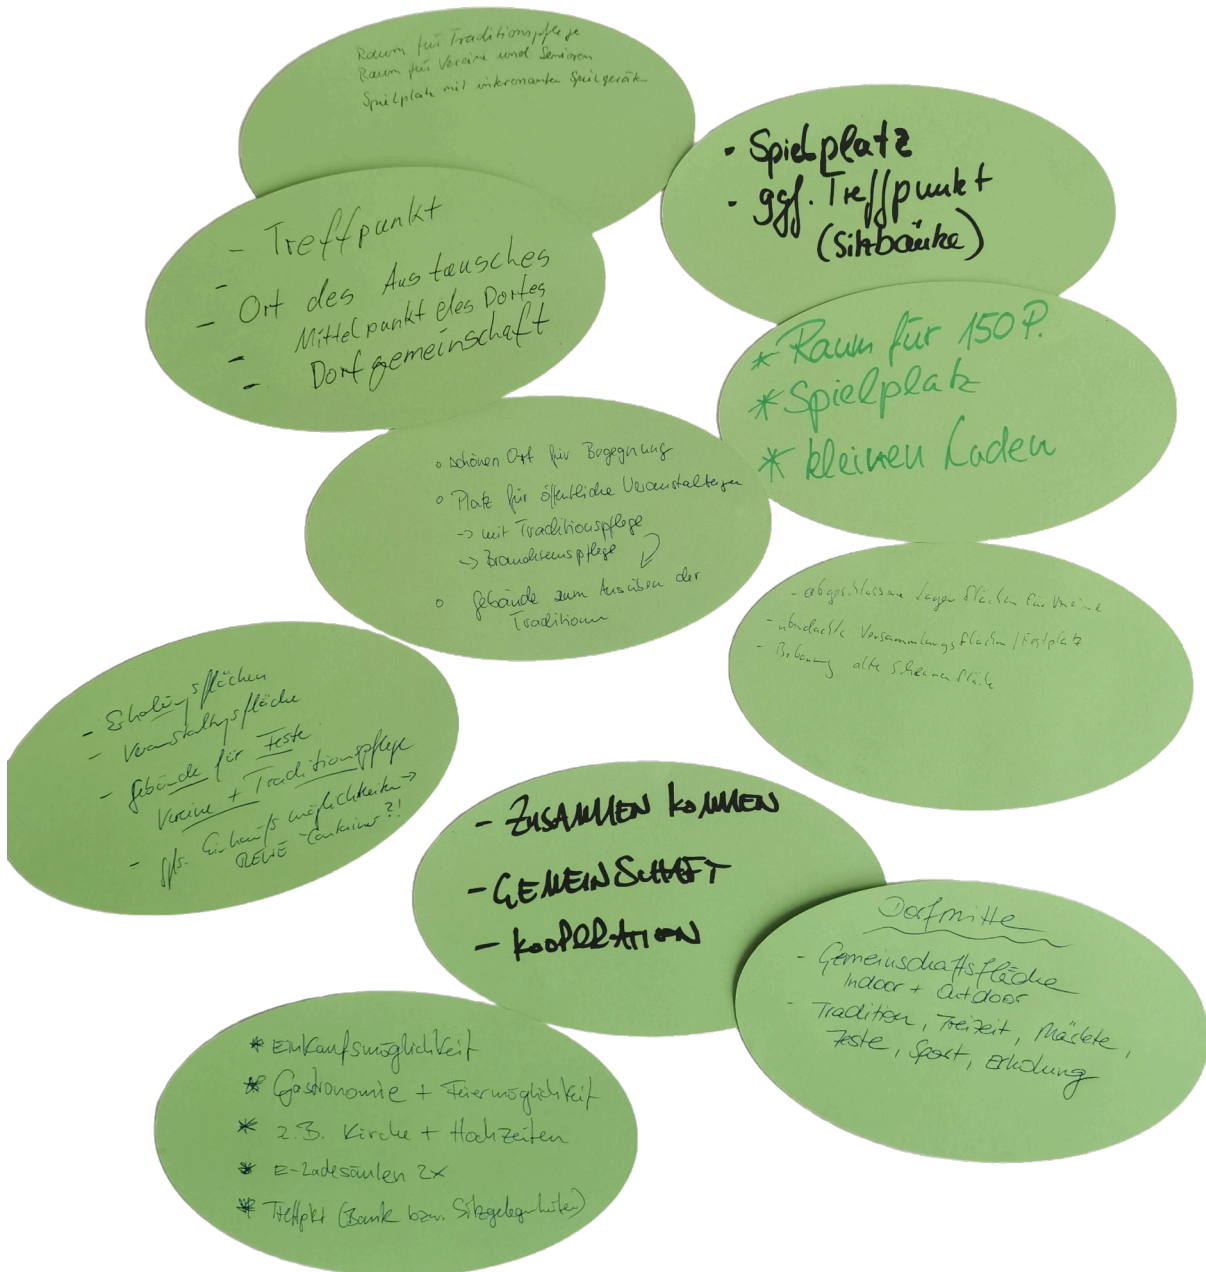 Raum für Traditionspflege
Raum für Vereine und Senioren
Spielplatz mit interessanten Spielgeräten
- Spielplatz
- ggf. Treffpunkt
(Sitzbänke)
- Treffpunkt
- Ort des Austausches
- Mittelpunkt des Dorfes
- Dorfgemeinschaft
* Raum für 150 P.
* Spielplatz
* kleinen Laden
o schönen Ort für Begegnung
o Platz für öffentliche Veranstaltungen
-> mit Traditionspflege
-> Brauchtumspflege
o Gebäude zum Ausüben der
Traditionen
- abgeschlossene Lagerflächen für Vereine
- überdachte Versammlungsflächen / Festplatz
- Bebauung alte Scheunenfläche
- Erholungsflächen
- Veranstaltungsfläche
- Gebäude für Feste
Vereine + Traditionspflege
- ggfs. Einkaufsmöglichkeiten ->
REWE-Container?!
- ZUSAMMEN KOMMEN
- GEMEINSCHAFT
- KOOPERATION
Dorfmitte
- Gemeinschaftsfläche
Indoor + Outdoor
- Tradition, Freizeit, Märkte,
Feste, Sport, Erholung
* Einkaufsmöglichkeit
* Gastronomie + Feiermöglichkeit
* z.B. Kirche + Hochzeiten
* E-Ladesäulen 2x
* Treffpkt (Bank bzw. Sitzgelegenheiten)